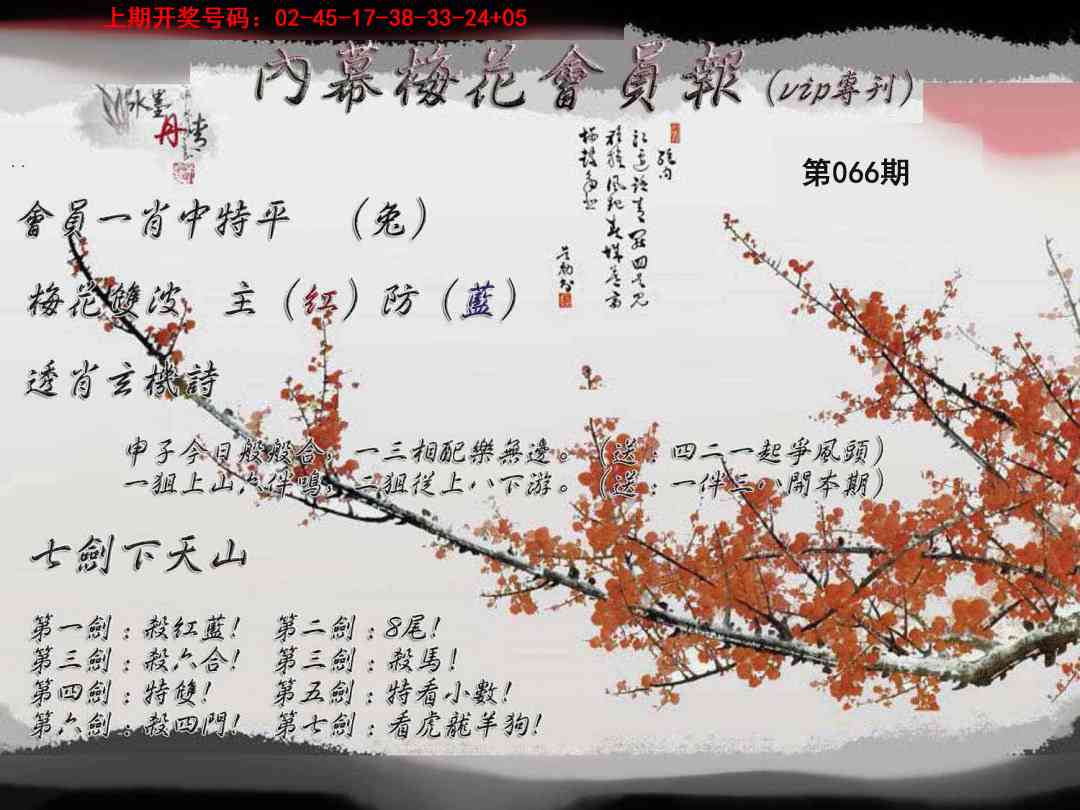 上期开奖号码：02-45-17-38-33-24+05
內幕梅花會員報（vip專刊）
水墨
丹青
第066期
會員一肖中特平 （兔）
梅花雙波 主（紅）防（藍）
透肖玄機詩
申子今日般般合，一三相配樂無邊。（送：四二一起爭風頭）
一狙上山六伴鳴，二狙從上八下游。（送：一伴三八開本期）
七劍下天山
第一劍：殺紅藍！ 第二劍：8尾！
第三劍：殺六合！ 第三劍：殺馬！
第四劍：特雙！ 第五劍：特看小數！
第六劍：殺四門！ 第七劍：看虎龍羊狗！